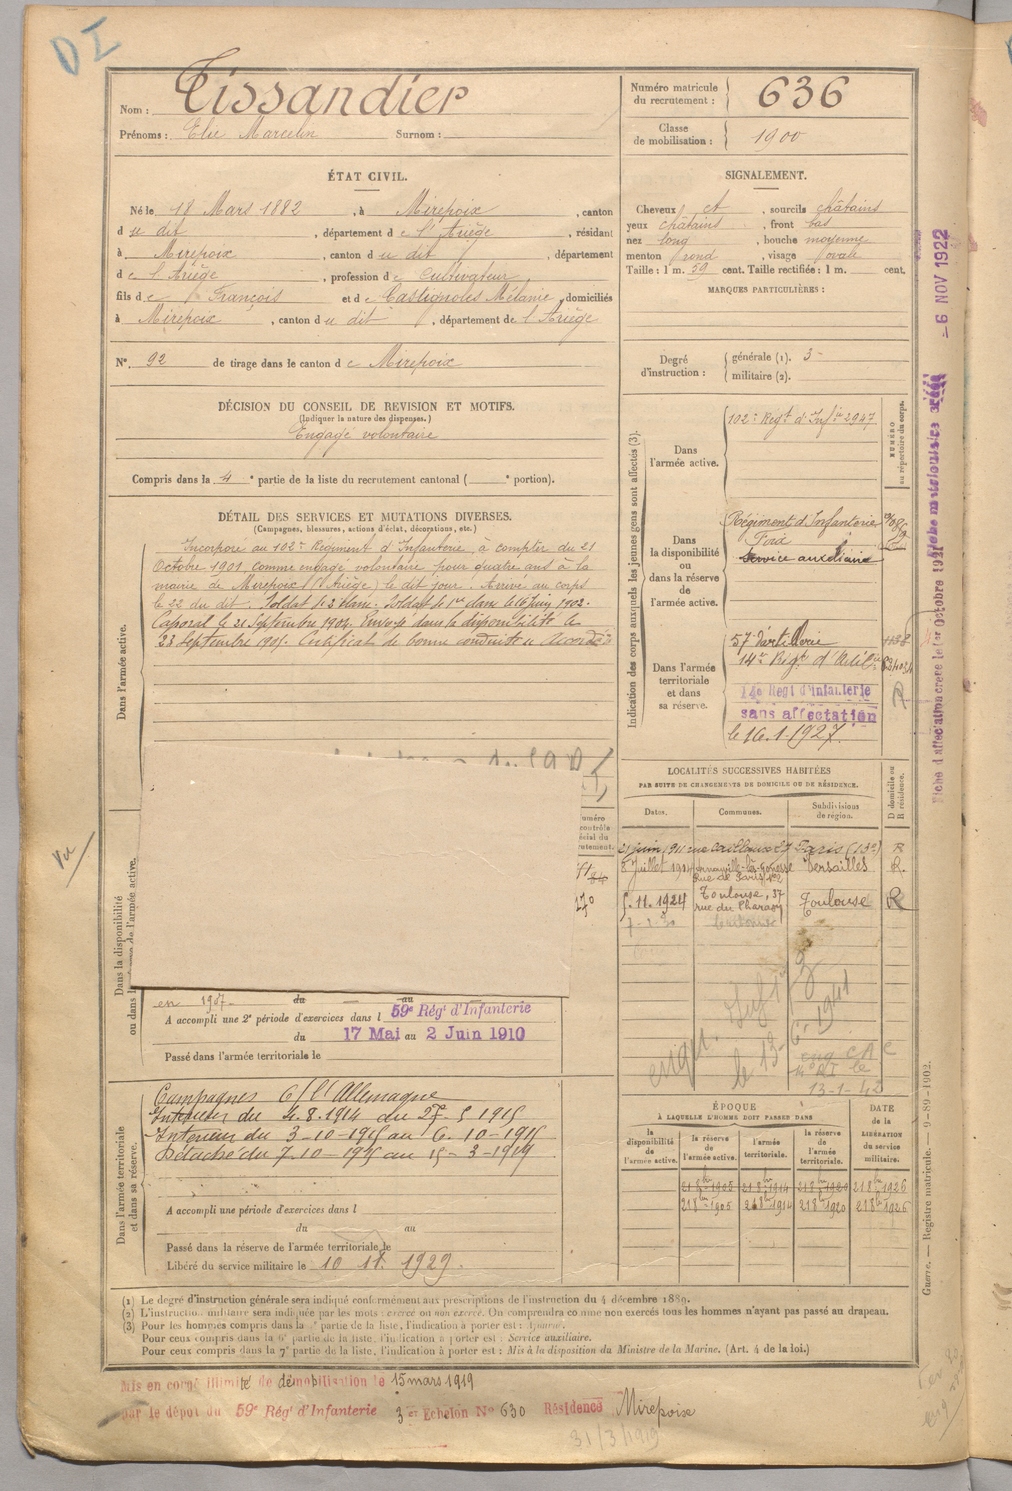 DI
Nom : Tissandier
Prénoms : Elie Marcelin Surnom :
Numéro matricule du recrutement : 636
Classe de mobilisation : 1900
ÉTAT CIVIL.
Né le 18 Mars 1882, à Mirepoix, canton
du dit, département de l'Ariège, résidant
à Mirepoix, canton du dit, département
de l'Ariège, profession de Cultivateur,
fils de François et de Castignoles Mélanie, domiciliés
à Mirepoix, canton du dit, département de l'Ariège
N° 92 de tirage dans le canton de Mirepoix
DÉCISION DU CONSEIL DE REVISION ET MOTIFS.
(Indiquer la nature des dispenses.)
Engagé volontaire
Compris dans la 4e partie de la liste du recrutement cantonal ( e portion).
DÉTAIL DES SERVICES ET MUTATIONS DIVERSES.
(Campagnes, blessures, actions d'éclat, décorations, etc.)
Dans l'armée active.
Incorporé au 102e Régiment d'Infanterie, à compter du 21
Octobre 1901 comme engagé volontaire pour quatre ans à la
mairie de Mirepoix (l'Ariège) le dit jour. Arrivé au corps
le 22 du dit. Soldat de 2e classe. Soldat de 1re classe le 16 juin 1902.
Caporal le 21 Septembre 1902. Envoyé dans la disponibilité le
23 Septembre 1905. Certificat de bonne conduite Accordé
Dans la disponibilité
ou dans la réserve de l'armée active.
Vu
en 1907 du — au
A accompli une 2e période d'exercices dans l 59e Régt d'Infanterie
du 17 Mai au 2 Juin 1910
Passé dans l'armée territoriale le
Dans l'armée territoriale
et dans sa réserve.
Campagnes C/ l'Allemagne
Intérieur du 4.8.1914 du 27 5 1915
Intérieur du 3-10-1915 au 6.10-1915
Détaché du 7.10-1915 au 15-3-1919
A accompli une période d'exercices dans l
du au
Passé dans la réserve de l'armée territoriale le
Libéré du service militaire le 10 11. 1929.
SIGNALEMENT.
Cheveux et, sourcils châtains
yeux châtains, front bas
nez long, bouche moyenne
menton rond, visage ovale
Taille : 1 m. 59 cent. Taille rectifiée : 1 m. cent.
MARQUES PARTICULIÈRES :
Degré d'instruction : générale (1). 3
militaire (2).
Indication des corps auxquels les jeunes gens sont affectés (3).
NUMÉRO au répertoire du corps.
Dans l'armée active.
102e Régt d'Infie 2947
Dans la disponibilité ou dans la réserve de l'armée active.
Régiment d'Infanterie
Foix
Service auxiliaire
Dans l'armée territoriale et dans sa réserve.
57 d'artillerie
14e Régt d'Artie
14e Regt d'infanterie
sans affectation
le 16.1.1927.
LOCALITÉS SUCCESSIVES HABITÉES
PAR SUITE DE CHANGEMENTS DE DOMICILE OU DE RÉSIDENCE.
Dates. Communes. Subdivisions de région. D domicile ou R résidence.
21 juin 1911 rue Caillaux 27 Paris (13e) R
8 Juillet 1914 Arnouville-lès-Gonesse Rue de Paris Versailles R.
5.11.1924 Toulouse, 37 rue du Charas Toulouse R
7-1-30
13-1-42
ÉPOQUE
À LAQUELLE L'HOMME DOIT PASSER DANS
DATE de la LIBÉRATION du service militaire.
la disponibilité de l'armée active. la réserve de l'armée active. l'armée territoriale. la réserve de l'armée territoriale.
21 8bre 1905 21 8bre 1914 21 8bre 1920 21 8bre 1926
21 8bre 1905 21 8bre 1914 21 8bre 1920 21 8bre 1926
(1) Le degré d'instruction générale sera indiqué conformément aux prescriptions de l'instruction du 4 décembre 1889.
(2) L'instruction militaire sera indiquée par les mots : exercé ou non exercé. On comprendra comme non exercés tous les hommes n'ayant pas passé au drapeau.
(3) Pour les hommes compris dans la partie de la liste, l'indication à porter est : Ajourné.
Pour ceux compris dans la 6e partie de la liste, l'indication à porter est : Service auxiliaire.
Pour ceux compris dans la 7e partie de la liste, l'indication à porter est : Mis à la disposition du Ministre de la Marine. (Art. 4 de la loi.)
Mis en congé illimité de démobilisation le 15 mars 1919
par le dépôt du 59e Régt d'Infanterie 3e Echelon N° 630 Résidence Mirepoix
31/3/1919
Fiche d'affectation créée le 1er Octobre 1921
Fiche matriculaire créée
-6 NOV 1922
Guerre. — Registre matricule. — 9-89-1902.